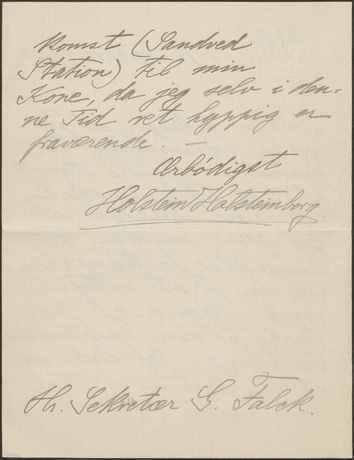 komst (Sandved
Station) til min
Kone, da jeg selv i den-
ne Tid ret hyppig er
fraværende. —
Ærbødigst
Holstein Holsteinborg.
Hr. Sekretær G. Falck.